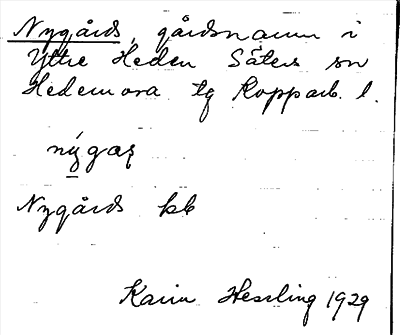 Nygårds, gårdsnamn i
Yttre Heden Säters sn
Hedemora tg Kopparb. l.
nýgaʂ
Nygårds kb
Karin Hessling 1929